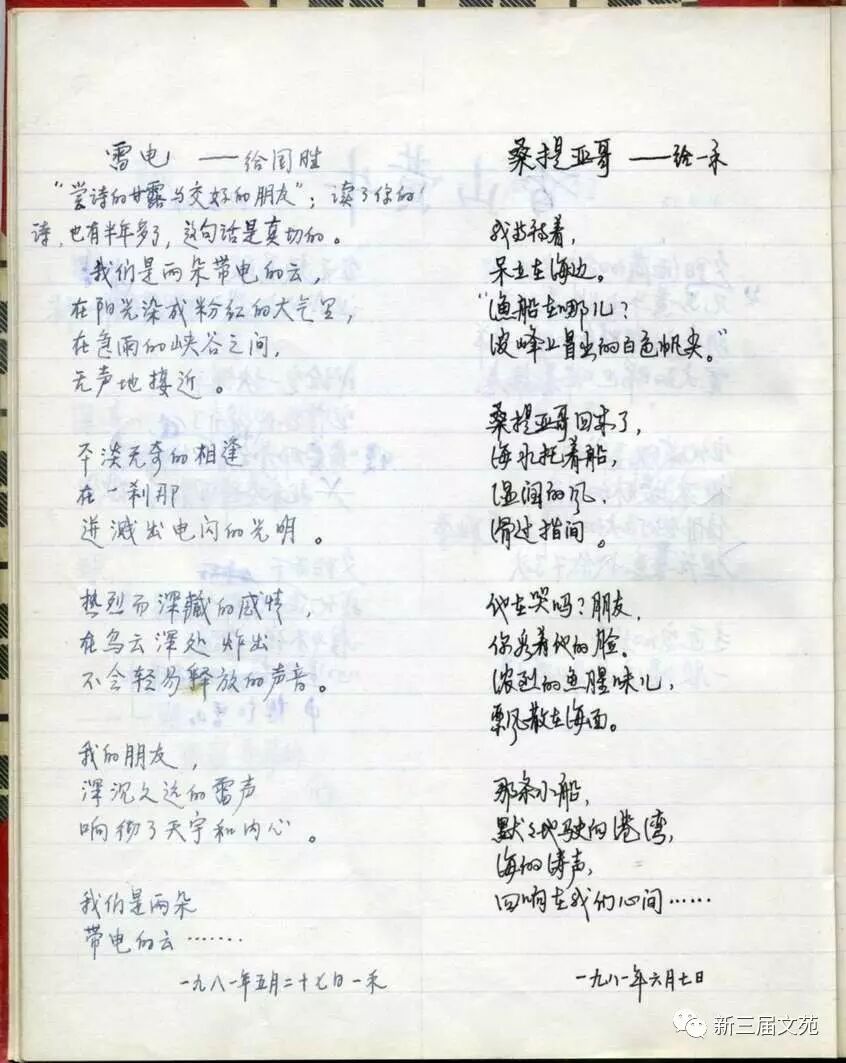 雷电 ——给国胜
“尝诗的甘露与交好的朋友”；读了你的
诗，也有半年多了，这句话是真切的。
我们是两朵带电的云，
在阳光染成粉红的大气里，
在急雨的峡谷之间，
无声地接近。
平淡无奇的相逢
在一刹那
迸溅出电闪的光明。
热烈而深藏的感情，
在乌云深处炸出
不会轻易释放的声音。
我的朋友，
深沉久远的雷声
响彻了天宇和内心。
我们是两朵
带电的云……
一九八一年五月二十七日一禾
桑提亚哥 ——给一禾
我在
呆立在海边。
“渔船在哪儿？
波峰上冒出的白色帆尖。”
桑提亚哥回来了，
海水托着船，
湿润的风，
滑过指间。
他在哭吗？朋友，
你看着他的脸，
浓烈的鱼腥味儿，
飘散在海面。
那条小船，
默々地驶向港湾，
海的涛声，
回响在我们心间……
一九八一年六月七日
新三届文苑